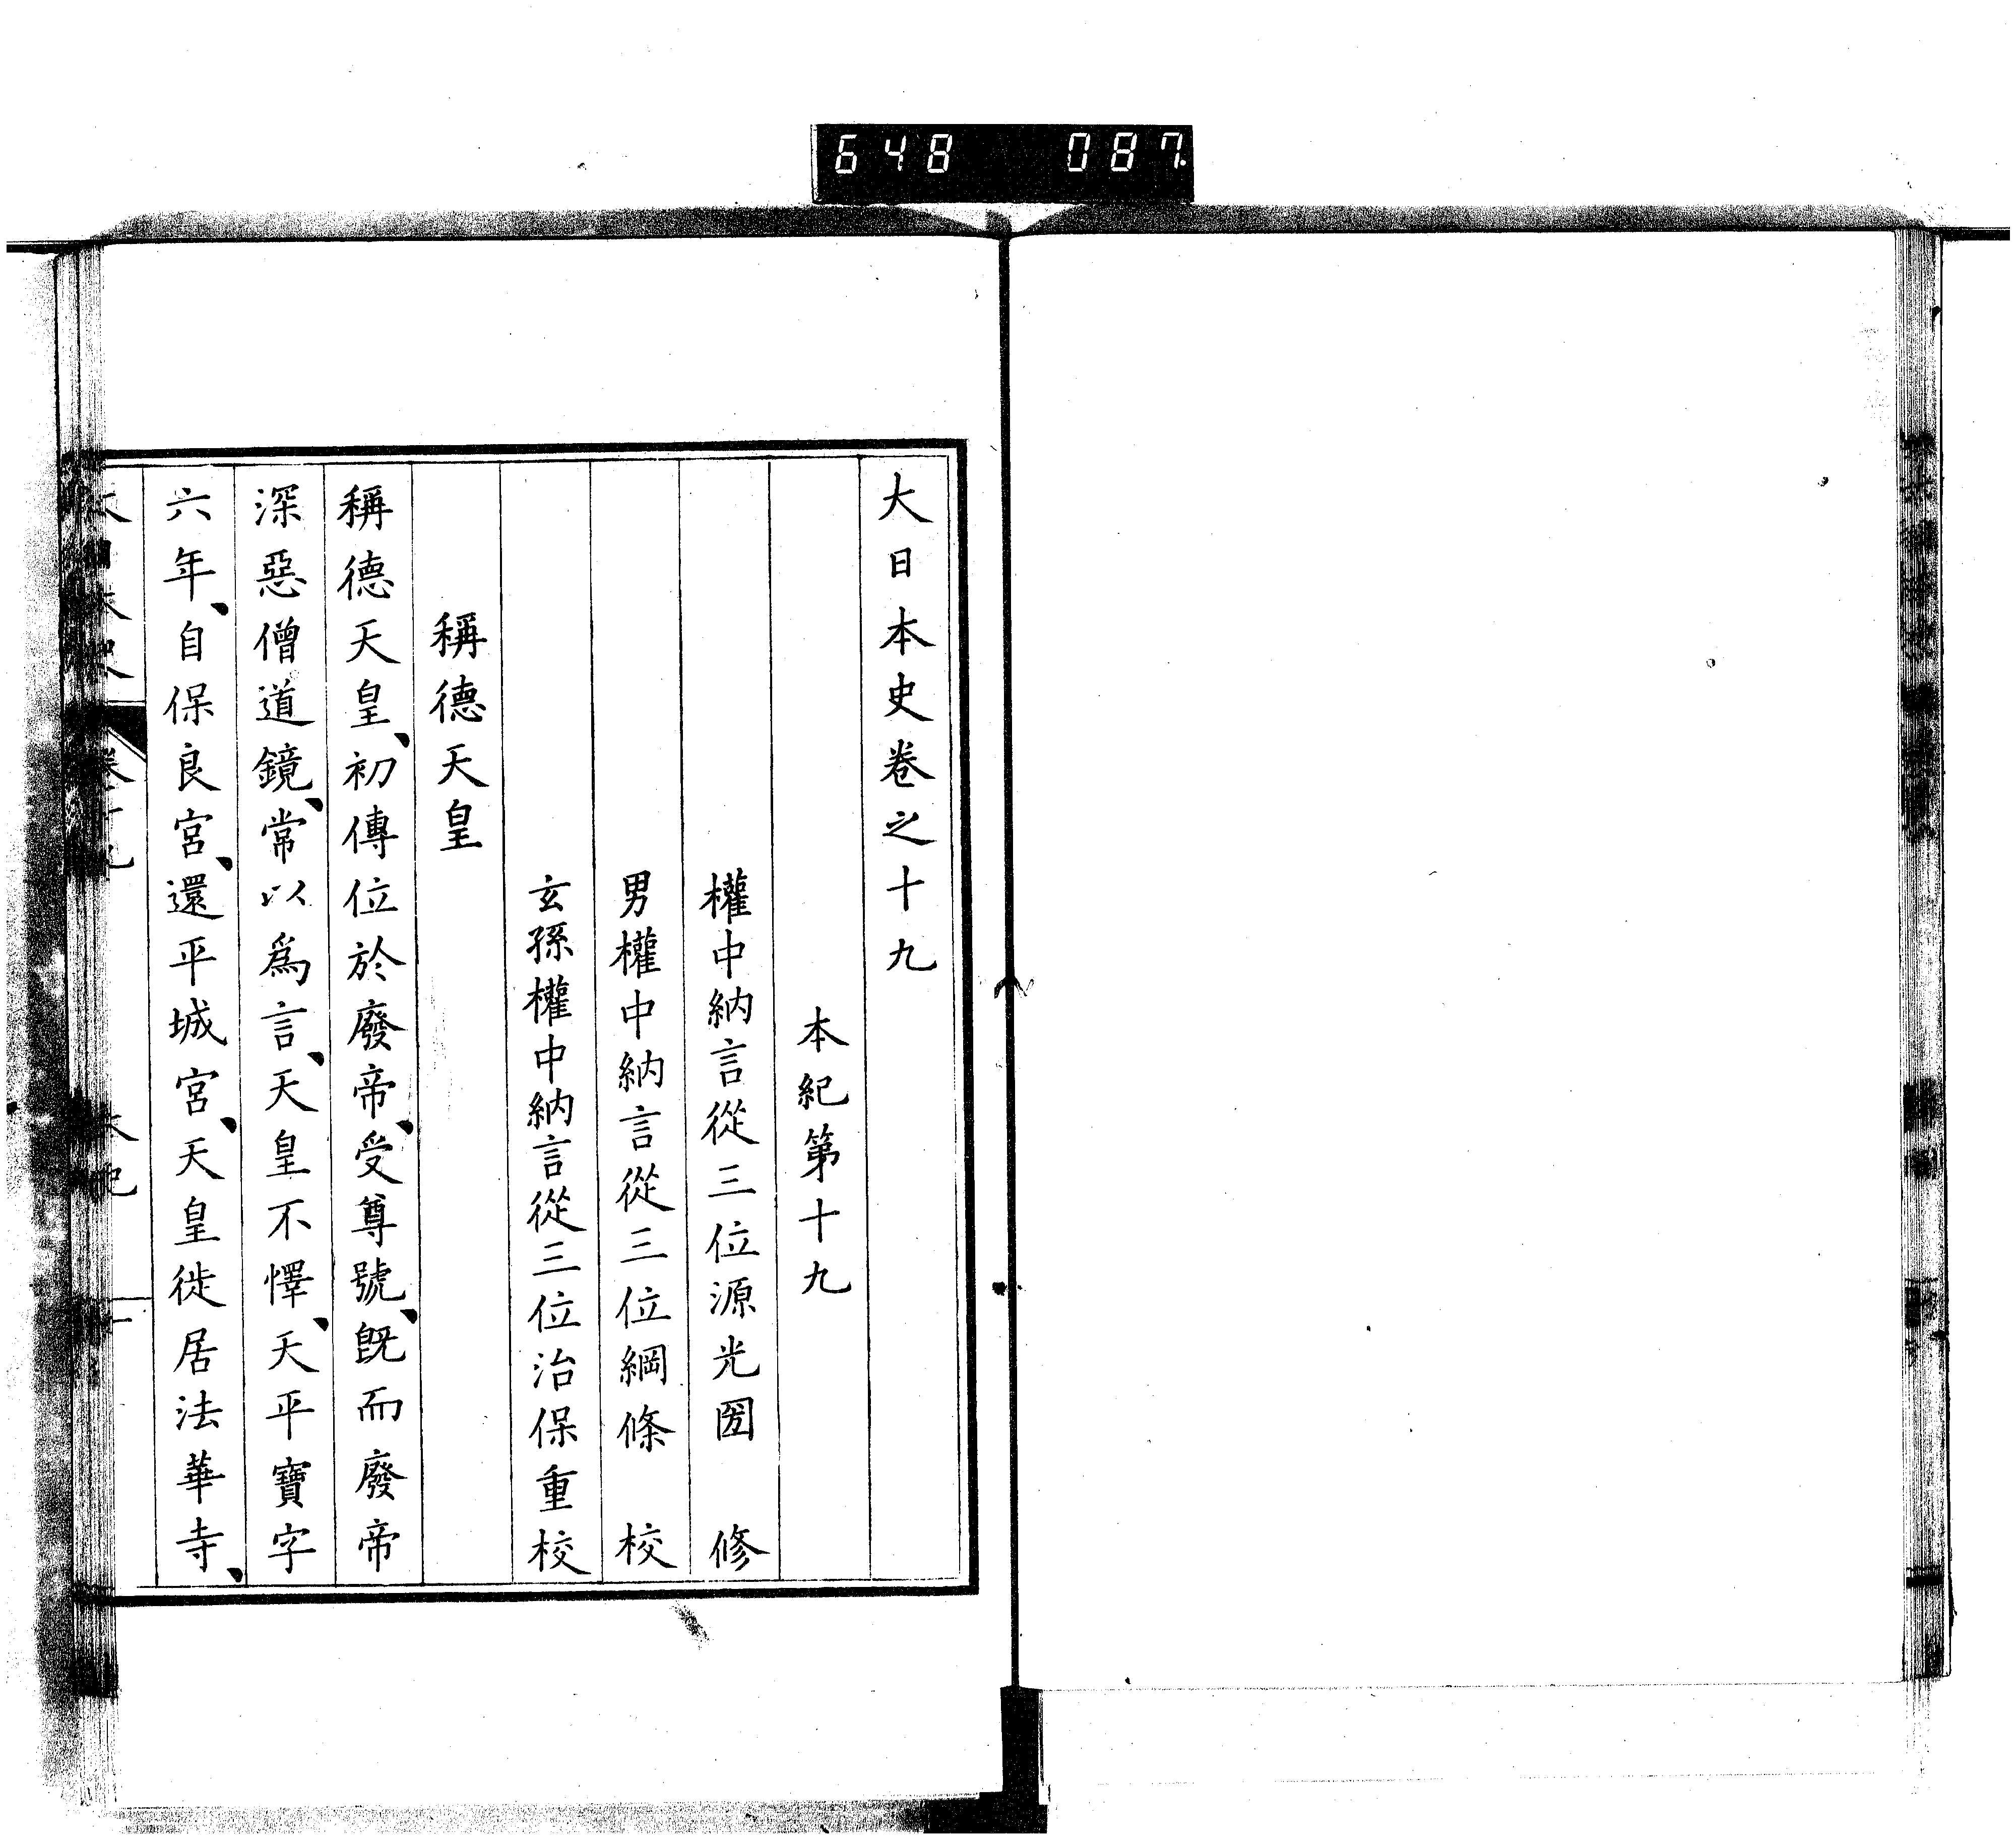 648 087
大日本史卷之十九
本紀第十九
權中納言從三位源光圀 修
男權中納言從三位綱條 校
玄孫權中納言從三位治保重校
稱德天皇
稱德天皇、初傳位於廢帝、受尊號、既而廢帝
深惡僧道鏡、常以爲言、天皇不懌、天平寶字
六年、自保良宮、還平城宮、天皇徙居法華寺、